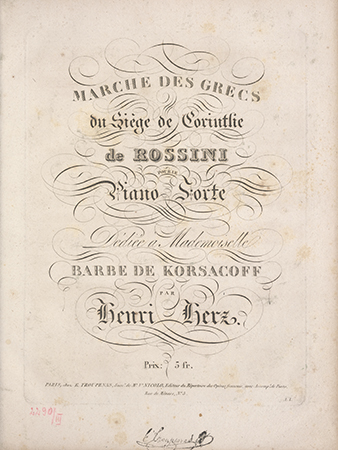 MARCHE DES GRECS
du Siège de Corinthe
de ROSSINI
POUR LE
Piano Forte
Dédiée à Mademoiselle
BARBE DE KORSACOFF
PAR
Henri Herz.
Prix: 5 fr.
PARIS, chez E. TROUPENAS, Succr de Mr Ve NICOLO, Editeur du Répertoire des Opéras français
Rue de Ménars, No 3.
2290/III